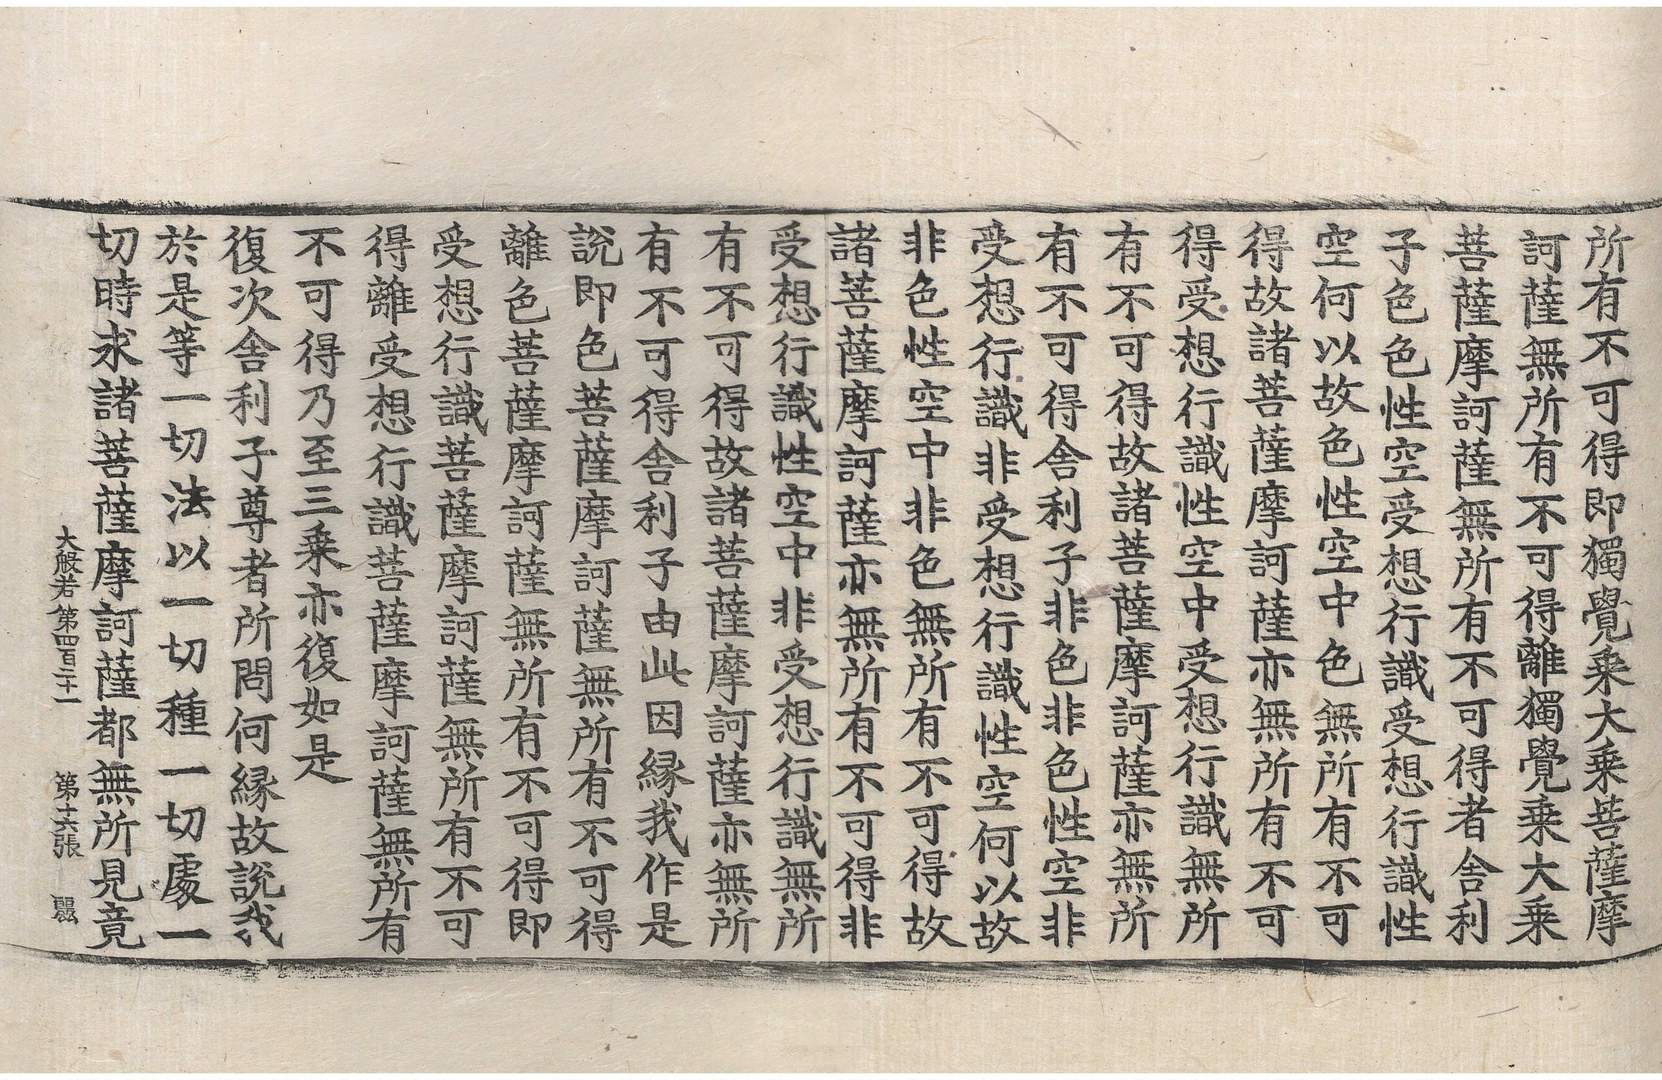 所有不可得即獨覺乘大乘菩薩摩
訶薩無所有不可得離獨覺乘大乘
菩薩摩訶薩無所有不可得者舍利
子色色性空受想行識受想行識性
空何以故色性空中色無所有不可
得故諸菩薩摩訶薩亦無所有不可
得受想行識性空中受想行識無所
有不可得故諸菩薩摩訶薩亦無所
有不可得舍利子非色非色性空非
受想行識非受想行識性空何以故
非色性空中非色無所有不可得故
諸菩薩摩訶薩亦無所有不可得非
受想行識性空中非受想行識無所
有不可得故諸菩薩摩訶薩亦無所
有不可得舍利子由此因緣我作是
說即色菩薩摩訶薩無所有不可得
離色菩薩摩訶薩無所有不可得即
受想行識菩薩摩訶薩無所有不可
得離受想行識菩薩摩訶薩無所有
不可得乃至三乘亦復如是
復次舍利子尊者所問何緣故說我
於是等一切法以一切種一切處一
切時求諸菩薩摩訶薩都無所見竟
大般若第四百二十一 第十六張